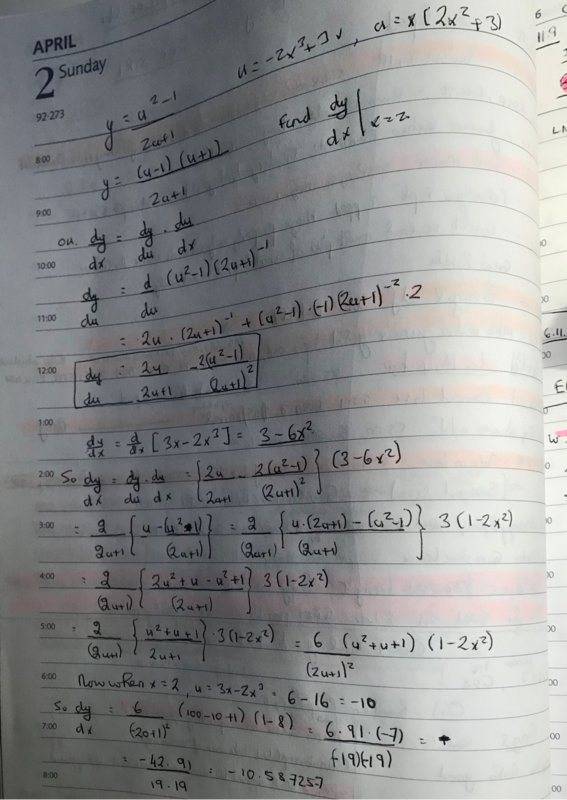 APRIL
2 Sunday
92-273
u = -2x³+3x, a = x[2x²+3)
y = u²-1 / 2u+1
find dy/dx | x=2
8:00
y = (u-1)(u+1) / 2u+1
9:00
ou. dy/dx = dy/du · du/dx
10:00
dy/du = d/du (u²-1)(2u+1)⁻¹
11:00
= 2u · (2u+1)⁻¹ + (u²-1)·(-1)(2u+1)⁻² · 2
12:00
dy/du = 2u/2u+1 -2(u²-1)/(2u+1)²
1:00
du/dx = d/dx [3x-2x³] = 3-6x²
2:00 So dy/dx = dy/du · du/dx = {2u/2u+1 - 2(u²-1)/(2u+1)²} (3-6x²)
3:00 = 2/2u+1 {u-(u²-1)/(2u+1)} = 2/(2u+1) {u·(2u+1)-(u²-1)/(2u+1)} 3(1-2x²)
4:00 = 2/(2u+1) {2u²+u-u²+1/(2u+1)} 3(1-2x²)
5:00 = 2/(2u+1) {u²+u+1/2u+1}·3(1-2x²) = 6 (u²+u+1) (1-2x²)/(2u+1)²
6:00 Now when x=2, u = 3x-2x³ = 6-16 = -10
So dy/dx = 6/(-20+1)² (100-10+1)(1-8) = 6·91·(-7)/(-19)(-19) =
7:00
= -42.91/19.19 = -10.587257
8:00
6
119
6.11.